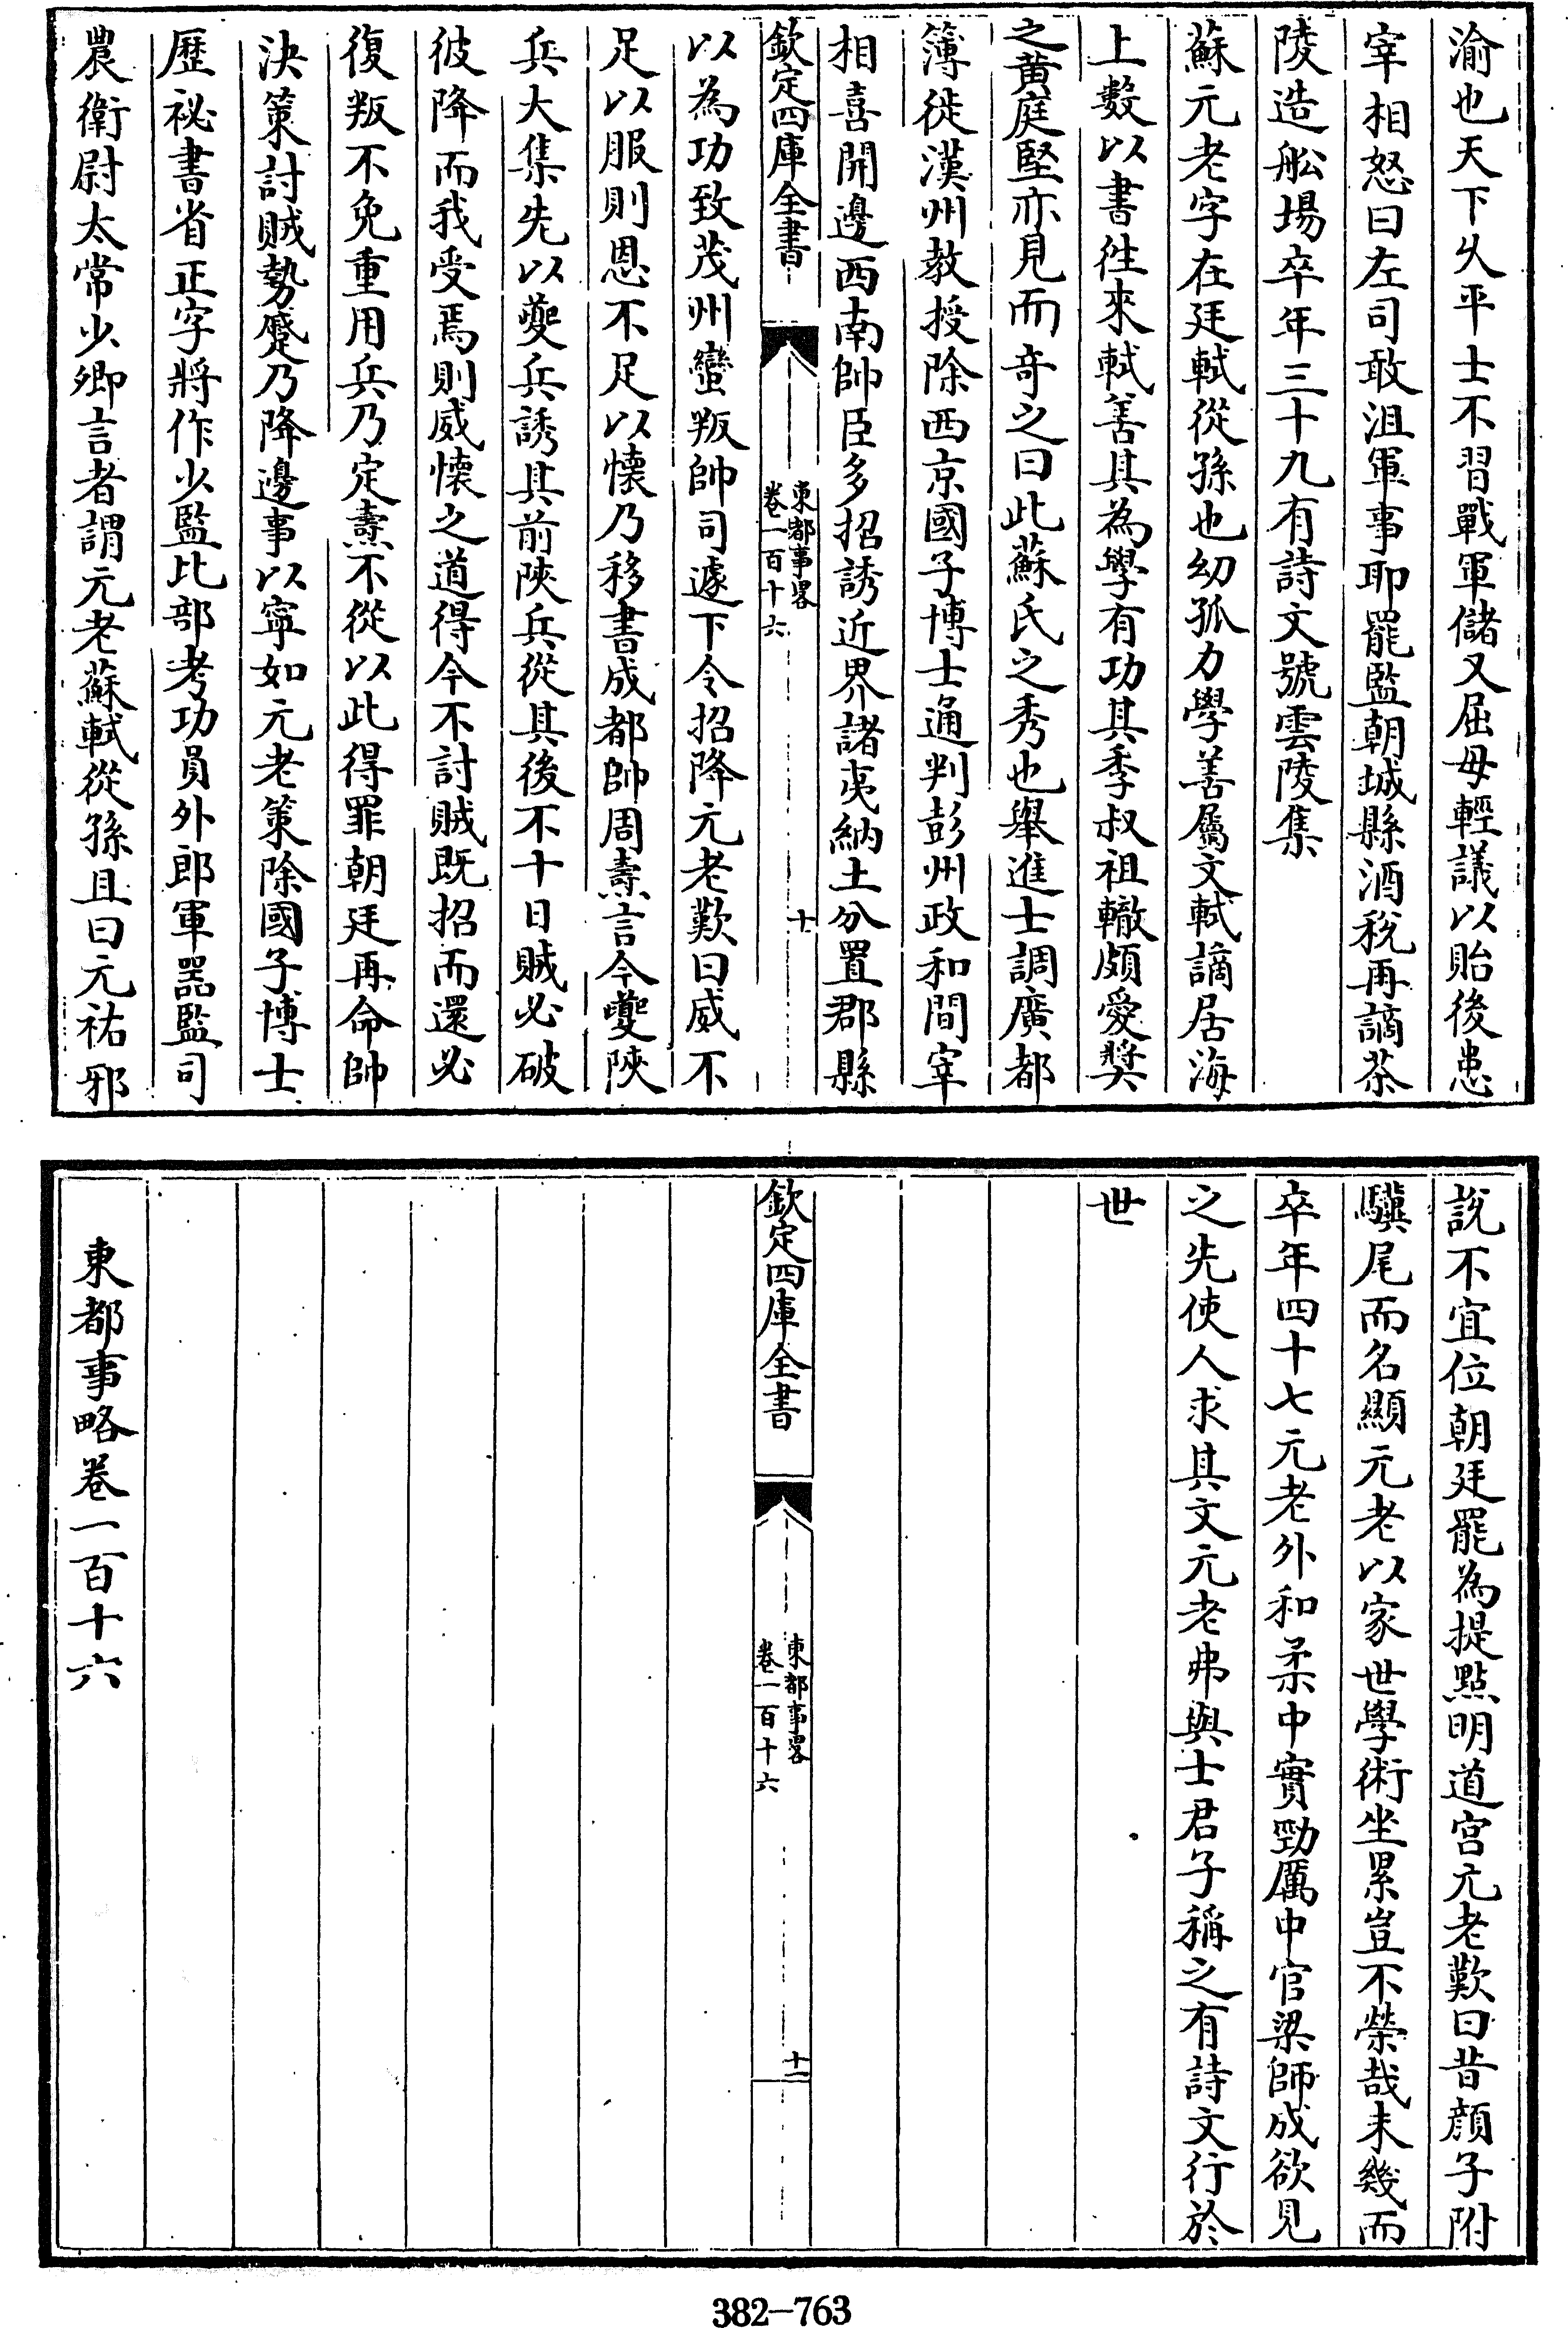 渝也天下久平士不習戰軍儲又屈毋輕議以貽後患
宰相怒曰左司敢沮軍事耶罷監朝城縣酒稅再謫茶
陵造舩場卒年三十九有詩文號雲陵集
蘇元老字在廷軾從孫也幼孤力學善屬文軾謫居海
上數以書徃來軾善其為學有功其季叔祖轍頗愛奬
之黄庭堅亦見而竒之曰此蘇氏之秀也舉進士調廣都
簿徙漢州教授除西京國子博士通判彭州政和間宰
相喜開邊西南帥臣多招誘近界諸夷納土分置郡縣
欽定四庫全書
東都事畧
卷一百十六
十
以為功致茂州蠻叛帥司遽下令招降元老歎曰威不
足以服則恩不足以懐乃移書成都帥周燾言今夔陝
兵大集先以夔兵誘其前陝兵從其後不十日賊必破
彼降而我受焉則威懐之道得今不討賊既招而還必
復叛不免重用兵乃定燾不從以此得罪朝廷再命帥
決策討賊勢蹙乃降邊事以寧如元老策除國子博士
歷祕書省正字將作少監比部考功員外郎軍器監司
農衛尉太常少卿言者謂元老蘇軾從孫且曰元祐邪
說不宜位朝廷罷為提點明道宫元老歎曰昔顔子附
驥尾而名顯元老以家世學術坐累豈不榮哉未幾而
卒年四十七元老外和柔中實勁厲中官梁師成欲見
之先使人求其文元老弗與士君子稱之有詩文行於
世
欽定四庫全書
東都事畧
卷一百十六
十一
東都事略卷一百十六
382-763